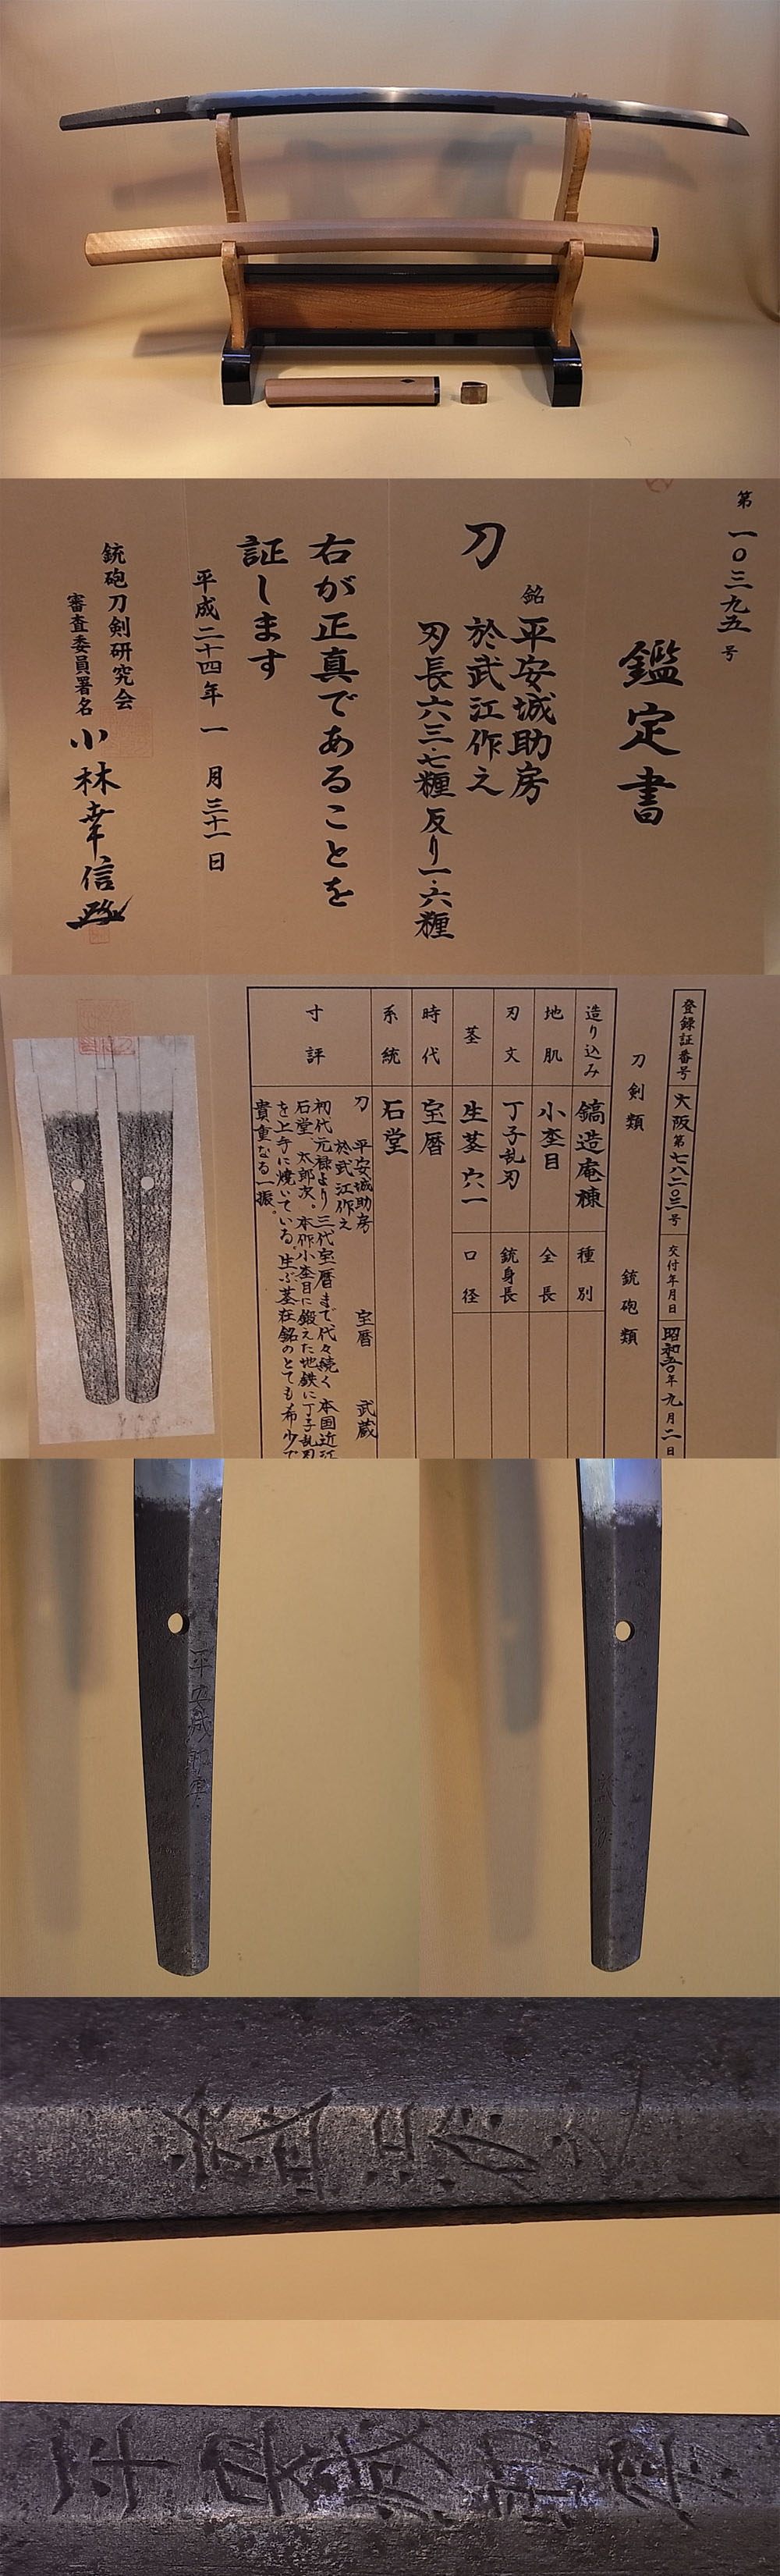 第一〇三九五号
鑑定書
刀
銘 平安城助房
於武江作之
刃長六三・七糎 反り一・六糎
右が正真であることを
証します
平成二十四年一月三十一日
銃砲刀剣研究会
審査委員署名 小林幸信
登録証番号 大阪第七八二〇三号 交付年月日 昭和五〇年九月二日
刀剣類 銃砲類
造り込み 鎬造庵棟 種別
地肌 小杢目 全長
刃文 丁子乱刃 銃身長
茎 生茎 穴一 口径
時代 宝暦
系統 石堂
寸評
刀 平安城助房 宝暦 武蔵
於武江作之
初代元禄より三代宝暦まで代々続く 本国近江
石堂 太郎次。本作小杢目に鍛えた地鉄に丁子乱刃
を上手に焼いている。生ぶ茎在銘のとても希少で
貴重なる一振。
平安城助房
武
平安城助房